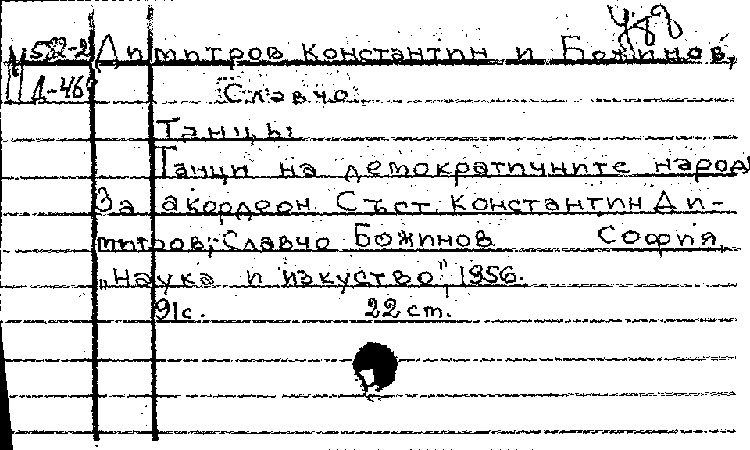 Димитров Константин и Божинов,
Д-46
Славчо
Танцы
Танци на демократичните народ
За акордеон Съст Константин Ди-
митров, Славчо Божинов София,
„Наука и изкуство", 1956.
91с. 22 ст.